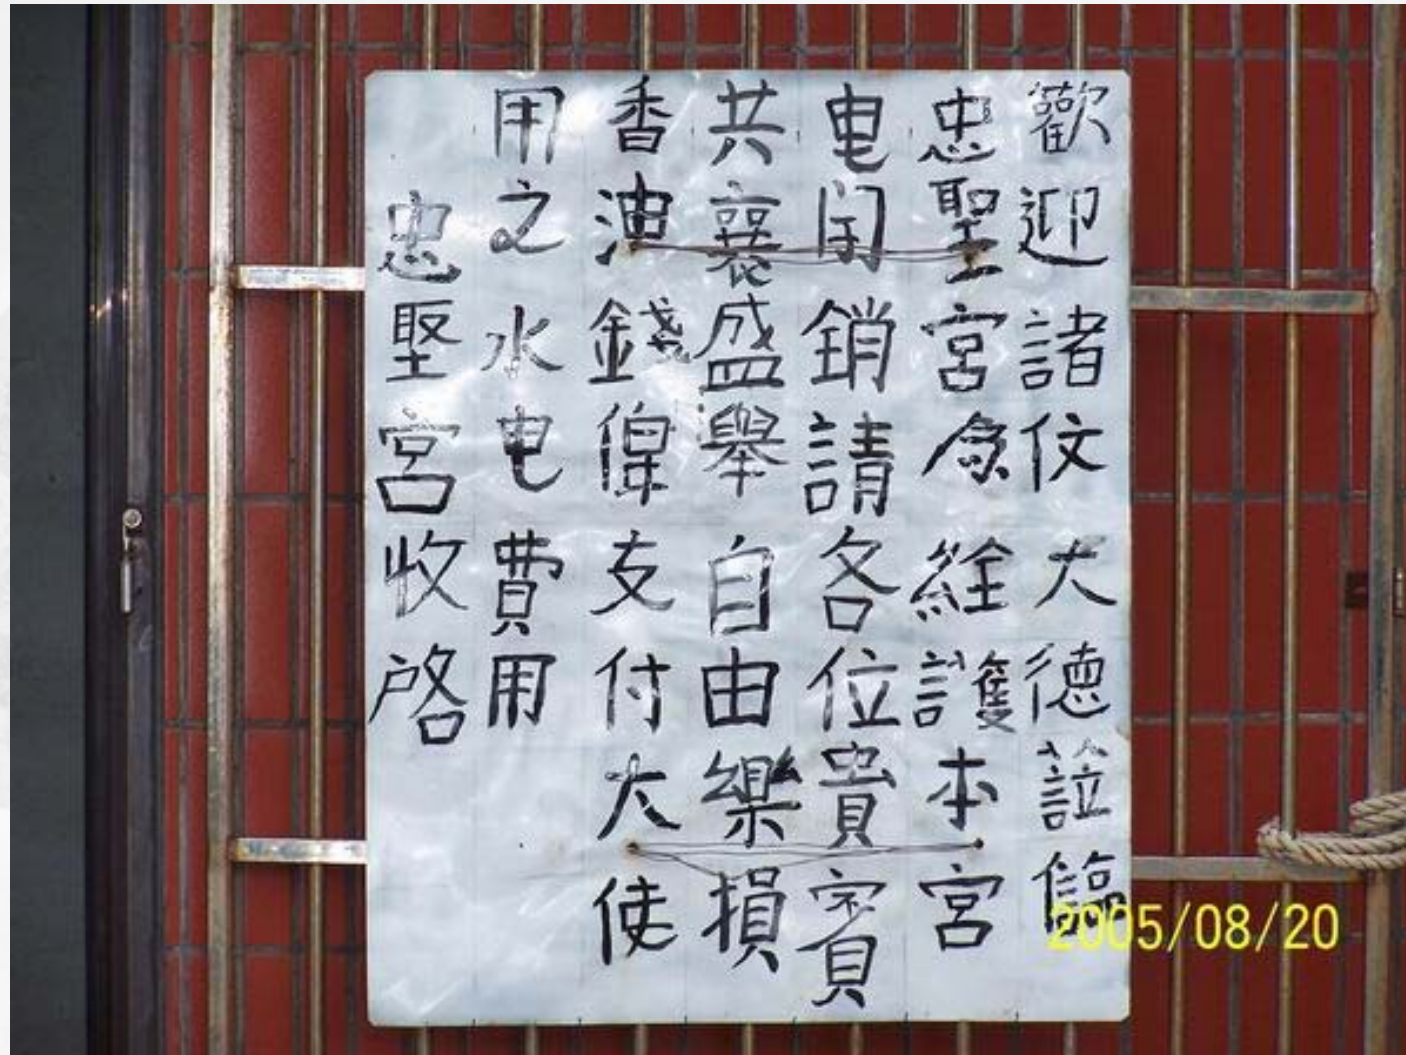 歡迎諸伩大德臨
忠聖宮為絟謢本宮
电開銷請各位貴賓
共襄盛舉自由樂損
香油錢俾支付大使
用之水电費用
忠聖宮收啓
2005/08/20